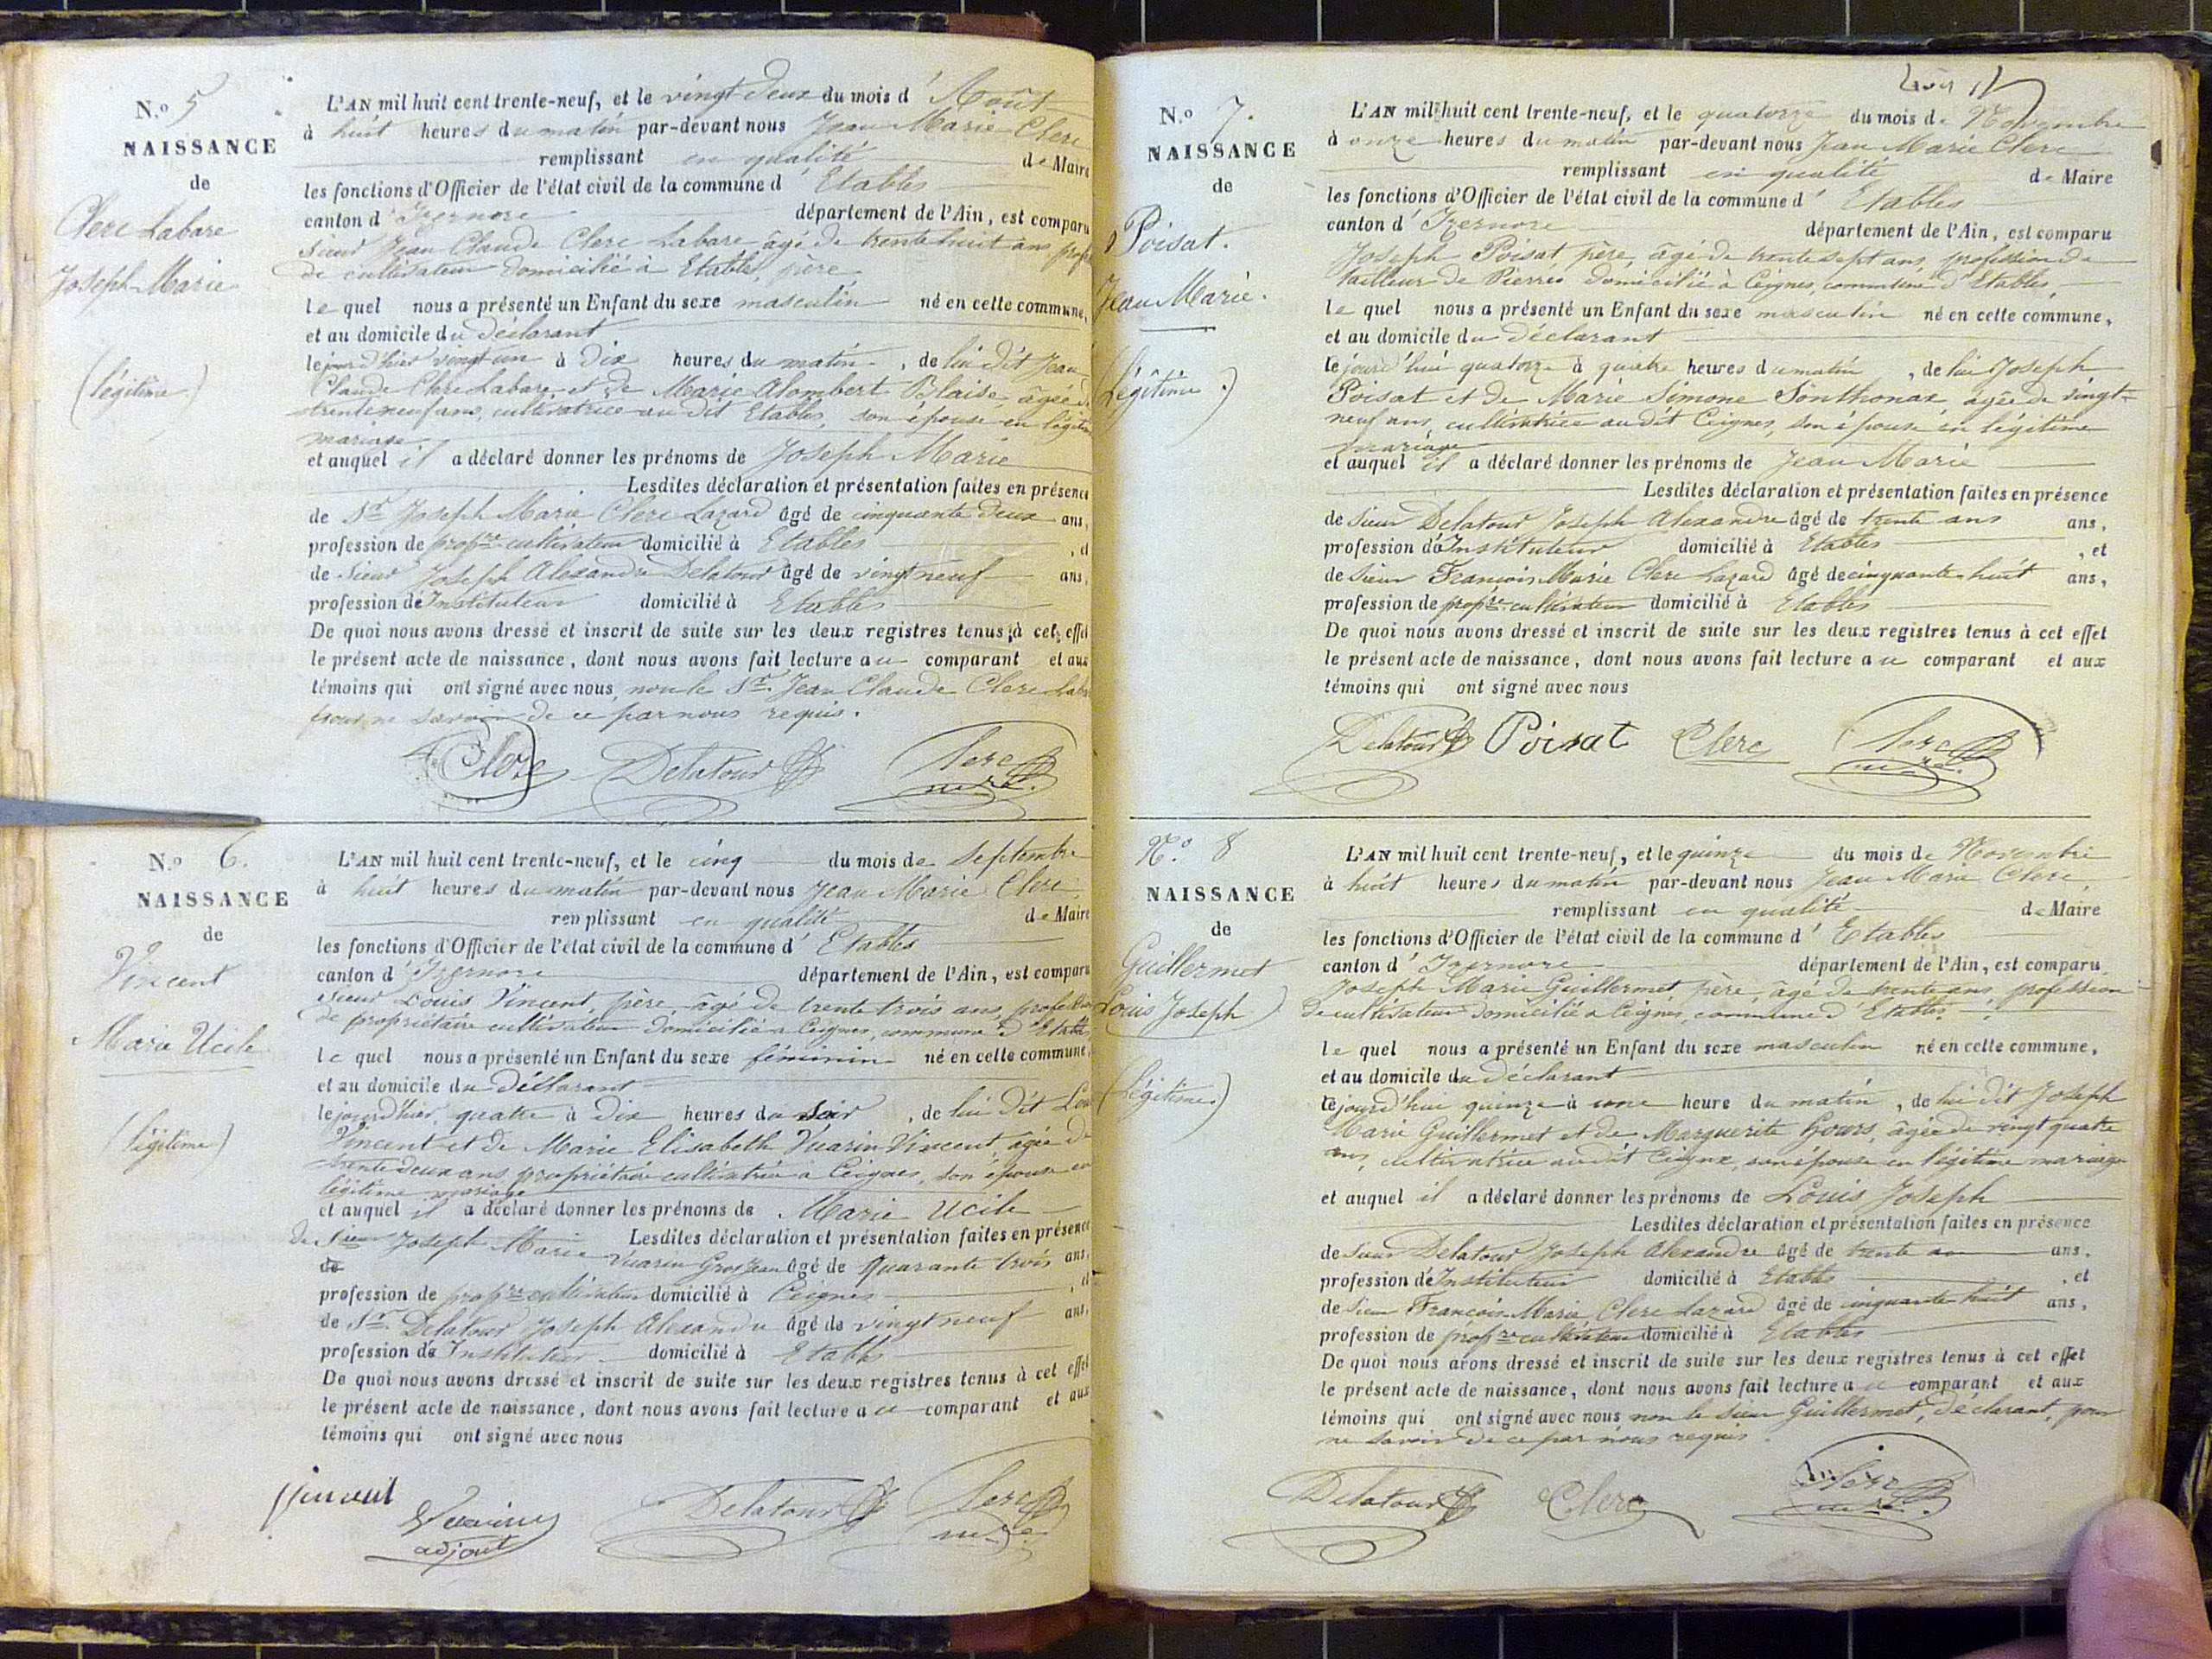 N.o 5
NAISSANCE
de
Clerc Labare
Joseph Marie
(légitime)
L'AN mil huit cent trente-neuf, et le vingt deux du mois d' Août
à huit heures du matin par-devant nous Jean Marie Clerc
remplissant en qualité de Maire
les fonctions d'Officier de l'état civil de la commune d' Etables
canton d' Izernore département de l'Ain, est comparu
sieur Jean Claude Clerc Labare âgé de trente huit ans
de cultivateur domicilié à Etables, père
le quel nous a présenté un Enfant du sexe masculin né en cette commune,
et au domicile du déclarant
le jour d'hier vingt un à dix heures du matin, de lui dit Jean
Claude Clerc Labare et de Marie Alombert Blaise, âgée de
trente neuf ans, cultivatrice au dit Etables, son épouse en légitime
mariage
et auquel il a déclaré donner les prénoms de Joseph Marie
Lesdites déclaration et présentation faites en présence
de Sr Joseph Marie Clerc Lazard âgé de cinquante deux ans,
profession de propre cultivateur domicilié à Etables, et
de sieur Joseph Alexandre Delatour âgé de vingt neuf ans,
profession d'Instituteur domicilié à Etables
De quoi nous avons dressé et inscrit de suite sur les deux registres tenus à cet effet
le présent acte de naissance, dont nous avons fait lecture au comparant et aux
témoins qui ont signé avec nous, non le Sr. Jean Claude Clerc Labare
pour ne savoir de ce par nous requis.
Clerc Delatour Clerc maire
N.o 6.
NAISSANCE
de
Vincent
Marie Ucile
(légitime)
L'AN mil huit cent trente-neuf, et le cinq du mois de Septembre
à huit heures du matin par-devant nous Jean Marie Clerc,
remplissant en qualité de Maire
les fonctions d'Officier de l'état civil de la commune d' Etables
canton d' Izernore département de l'Ain, est comparu
sieur Louis Vincent, père, âgé de trente trois ans, profession
de propriétaire cultivateur domicilié à Ceignes, commune d'Etables
le quel nous a présenté un Enfant du sexe féminin né en cette commune,
et au domicile du déclarant
le jour d'hier quatre à dix heures du soir, de lui dit Louis
Vincent et de Marie Elisabeth Vuarin Vincent, âgée de
trente deux ans, propriétaire cultivatrice à Ceignes, son épouse en
légitime mariage
et auquel il a déclaré donner les prénoms de Marie Ucile
Lesdites déclaration et présentation faites en présence
de sieur Joseph Marie Vuarin Grosjean âgé de Quarante trois ans,
profession de propre cultivateur domicilié à Ceignes, et
de Sr. Delatour Joseph Alexandre âgé de vingt neuf ans,
profession d'Instituteur domicilié à Etables
De quoi nous avons dressé et inscrit de suite sur les deux registres tenus à cet effet
le présent acte de naissance, dont nous avons fait lecture au comparant et aux
témoins qui ont signé avec nous
Vincent Vuarin adjoint Delatour Clerc maire
N.o 7.
NAISSANCE
de
Poisat.
Jean Marie.
(légitime.)
L'AN mil huit cent trente-neuf, et le quatorze du mois de Novembre
à onze heures du matin par-devant nous Jean Marie Clerc
remplissant en qualité de Maire
les fonctions d'Officier de l'état civil de la commune d' Etables
canton d' Izernore département de l'Ain, est comparu
Joseph Poisat père, âgé de trente sept ans, profession de
tailleur de Pierres domicilié à Ceignes, commune d'Etables,
le quel nous a présenté un Enfant du sexe masculin né en cette commune,
et au domicile du déclarant
le jourd'hui quatorze à quatre heures du matin, de lui Joseph
Poisat et de Marie Simone Sonthonax âgée de vingt-
neuf ans, cultivatrice au dit Ceignes, son épouse en légitime
mariage
et auquel il a déclaré donner les prénoms de Jean Marie
Lesdites déclaration et présentation faites en présence
de sieur Delatour Joseph Alexandre âgé de trente ans ans,
profession d'Instituteur domicilié à Etables, et
de sieur François Marie Clerc Lazard âgé de cinquante huit ans,
profession de propre cultivateur domicilié à Etables
De quoi nous avons dressé et inscrit de suite sur les deux registres tenus à cet effet
le présent acte de naissance, dont nous avons fait lecture au comparant et aux
témoins qui ont signé avec nous
Delatour Poisat Clerc Clerc maire
N.o 8
NAISSANCE
de
Guillermet
Louis Joseph
(légitime)
L'AN mil huit cent trente-neuf, et le quinze du mois de Novembre
à huit heures du matin par-devant nous Jean Marie Clerc,
remplissant en qualité de Maire
les fonctions d'Officier de l'état civil de la commune d' Etables
canton d' Izernore département de l'Ain, est comparu
Joseph Marie Guillermet, père, âgé de trente ans, profession
de cultivateur domicilié à Ceignes, commune d'Etables.
le quel nous a présenté un Enfant du sexe masculin né en cette commune,
et au domicile du déclarant
le jourd'hui quinze à une heure du matin, de lui dit Joseph
Marie Guillermet et de Marguerite Gours, âgée de vingt quatre
ans, cultivatrice au dit Ceignes, son épouse en légitime mariage
et auquel il a déclaré donner les prénoms de Louis Joseph
Lesdites déclaration et présentation faites en présence
de sieur Delatour Joseph Alexandre âgé de trente an ans,
profession d'Instituteur domicilié à Etables, et
de sieur François Marie Clerc Lazard âgé de cinquante huit ans,
profession de propre cultivateur domicilié à Etables
De quoi nous avons dressé et inscrit de suite sur les deux registres tenus à cet effet
le présent acte de naissance, dont nous avons fait lecture au comparant et aux
témoins qui ont signé avec nous non le sieur Guillermet, déclarant, pour
ne savoir de ce par nous requis.
Delatour Clerc Clerc maire